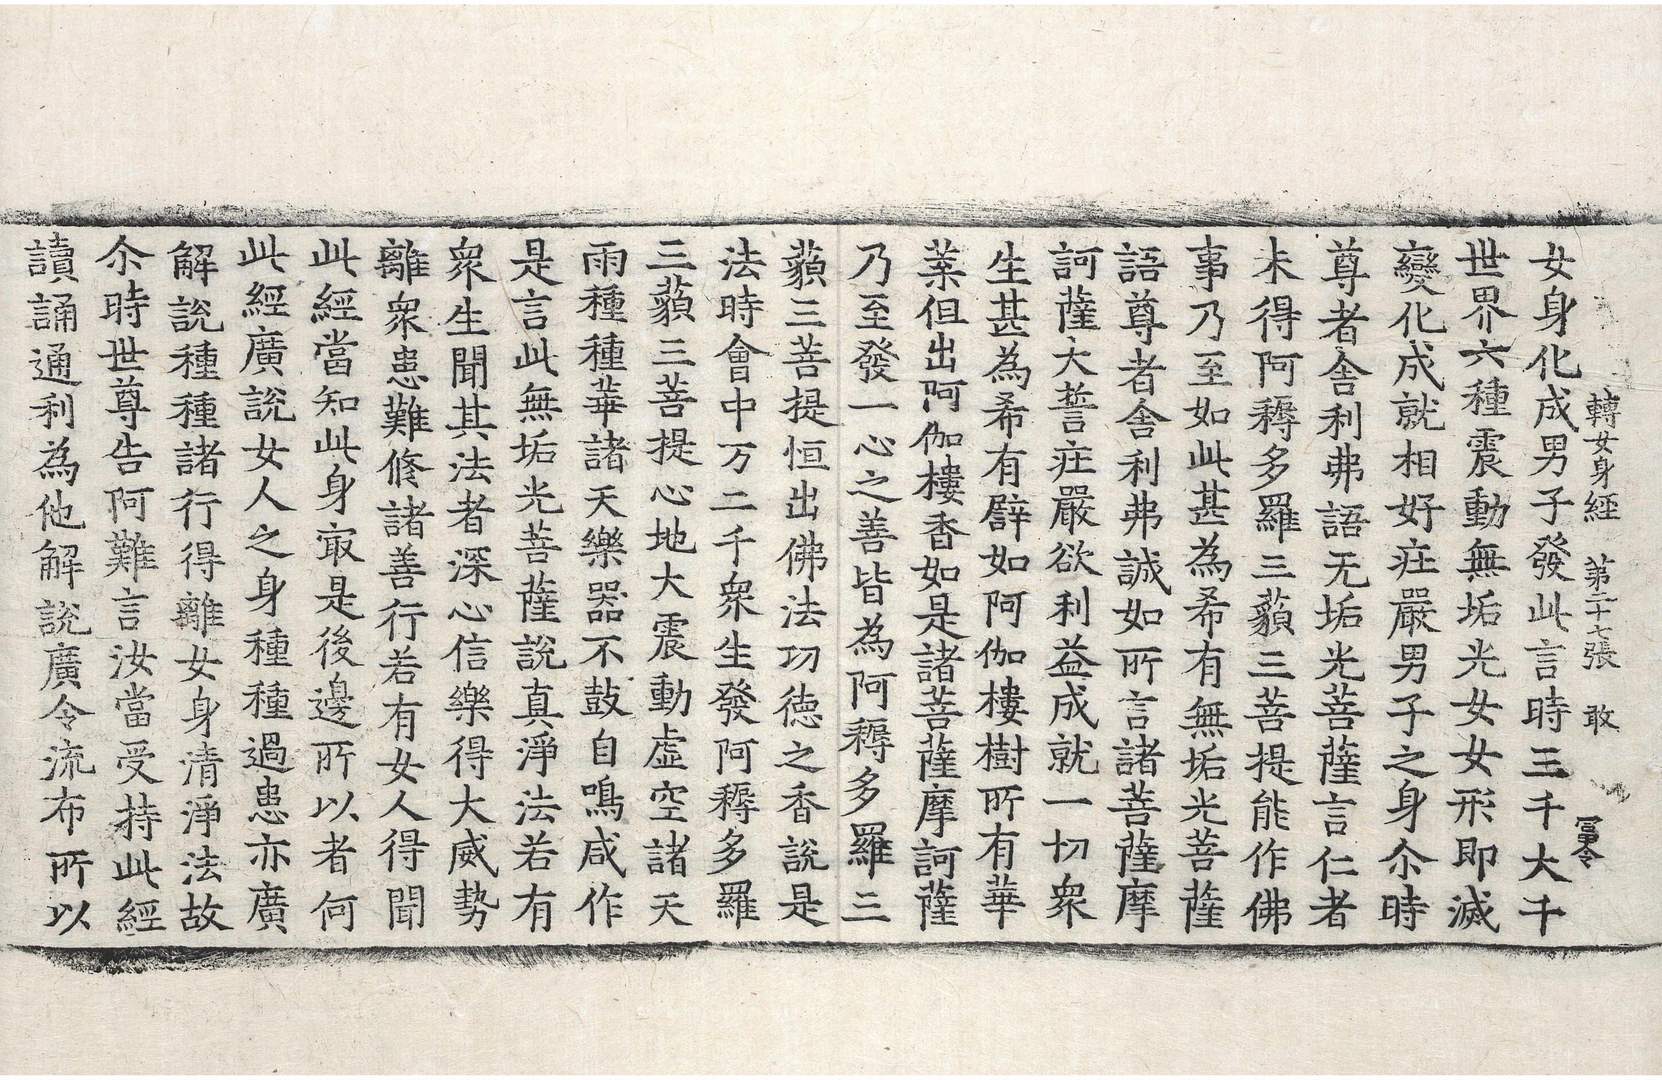 轉女身經 第二十七張 敢 冨令
女身化成男子發此言時三千大千
世界六種震動無垢光女女形即滅
變化成就相好庄嚴男子之身尒時
尊者舎利弗語无垢光菩薩言仁者
未得阿耨多羅三藐三菩提能作佛
事乃至如此甚為希有無垢光菩薩
語尊者舎利弗誠如所言諸菩薩摩
訶薩大誓庄嚴欲利益成就一切衆
生甚為希有譬如阿伽樓樹所有華
葉但出阿伽樓香如是諸菩薩摩訶薩
乃至發一心之善皆為阿耨多羅三
藐三菩提恒出佛法功徳之香說是
法時會中万二千衆生發阿耨多羅
三藐三菩提心地大震動虛空諸天
雨種種華諸天樂器不鼓自鳴咸作
是言此無垢光菩薩說真淨法若有
衆生聞其法者深心信樂得大威勢
離衆患難修諸善行若有女人得聞
此經當知此身㝡是後邊所以者何
此經廣說女人之身種種過患亦廣
解說種種諸行得離女身清淨法故
尒時世尊告阿難言汝當受持此經
讀誦通利為他解說廣令流布所以